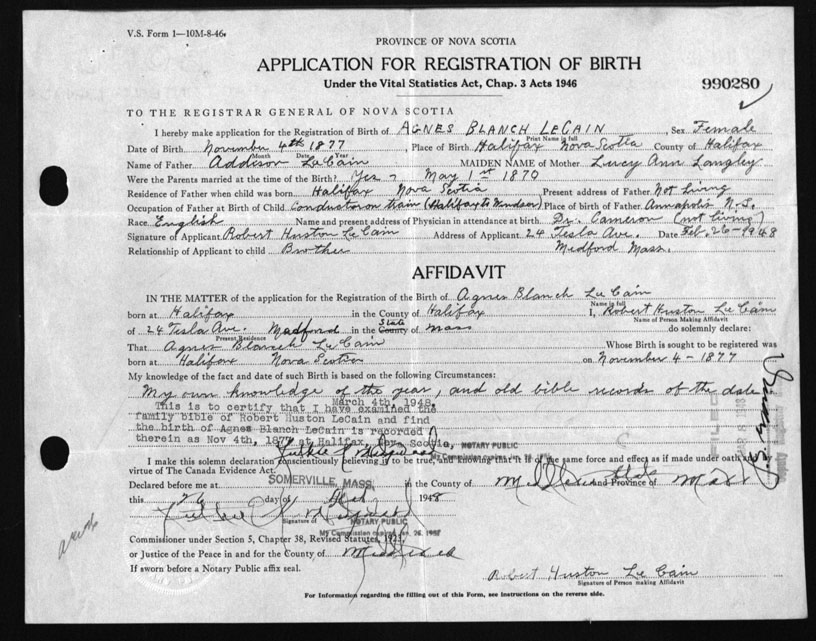 V.S. Form 1—10M-8-46
PROVINCE OF NOVA SCOTIA
APPLICATION FOR REGISTRATION OF BIRTH
Under the Vital Statistics Act, Chap. 3 Acts 1946
990280
TO THE REGISTRAR GENERAL OF NOVA SCOTIA
I hereby make application for the Registration of Birth of AGNES BLANCH LECAIN, Sex Female
Print Name in full
Date of Birth November 4th 1877, Place of Birth Halifax Nova Scotia County of Halifax
Month Date Year
Name of Father Addison LeCain MAIDEN NAME of Mother Lucy Ann Langley
Were the Parents married at the time of the Birth? Yes - May 1st 1870
Residence of Father when child was born Halifax Nova Scotia Present address of Father Not Living
Occupation of Father at Birth of Child Conductor on train (Halifax to Windsor) Place of birth of Father Annapolis N.S.
Race English Name and present address of Physician in attendance at birth Dr. Cameron (not living)
Signature of Applicant Robert Huston LeCain Address of Applicant 24 Tesla Ave. Date Feb. 26-1948
Relationship of Applicant to child Brother Medford Mass.
AFFIDAVIT
IN THE MATTER of the application for the Registration of the Birth of Agnes Blanch LeCain
Name in full
born at Halifax in the County of Halifax I, Robert Huston LeCain
Name of Person Making Affidavit
of 24 Tesla Ave. Medford in the County State of Mass do solemnly declare:
Present Residence
That Agnes Blanch LeCain Whose Birth is sought to be registered was
born at Halifax Nova Scotia on November 4-1877
My knowledge of the fact and date of such Birth is based on the following Circumstances:
My own knowledge of the year, and old bible records of the date
March 4th, 1948
This is to certify that I have examined the
family bible of Robert Huston LeCain and find
the birth of Agnes Blanch LeCain is recorded
therein as Nov 4th, 1877 at Halifax, Nov. Scotia,
NOTARY PUBLIC
My Commission expires Jan. 26,
I make this solemn declaration conscientiously believing it to be true, and knowing that it is of the same force and effect as if made under oath and by
virtue of The Canada Evidence Act.
Declared before me at SOMERVILLE, MASS. in the County of Middlesex and Province of State Mass
this 26 day of Feb 1948
Signature of
NOTARY PUBLIC
My Commission expires Jan. 26,
Commissioner under Section 5, Chapter 38, Revised Statutes, 1923,
or Justice of the Peace in and for the County of Middlesex
If sworn before a Notary Public affix seal.
Robert Huston LeCain
Signature of Person making Affidavit
For Information regarding the filling out of this Form, see instructions on the reverse side.